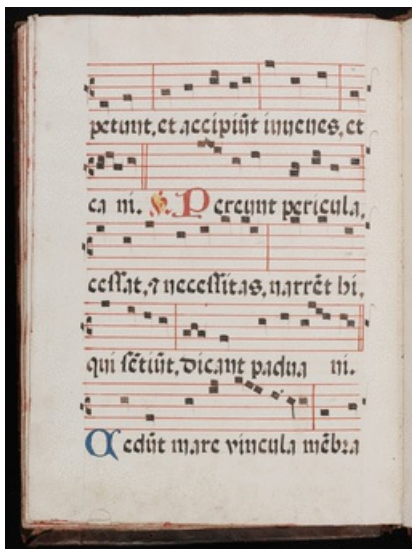 petunt, et accipiūt iuuenes, et
ca ni. ℣. Pereunt pericula,
cessat, ⁊ necessitas, narrēt hi,
qui sētiūt, dicant padua ni.
Cedūt mare vincula mēbra